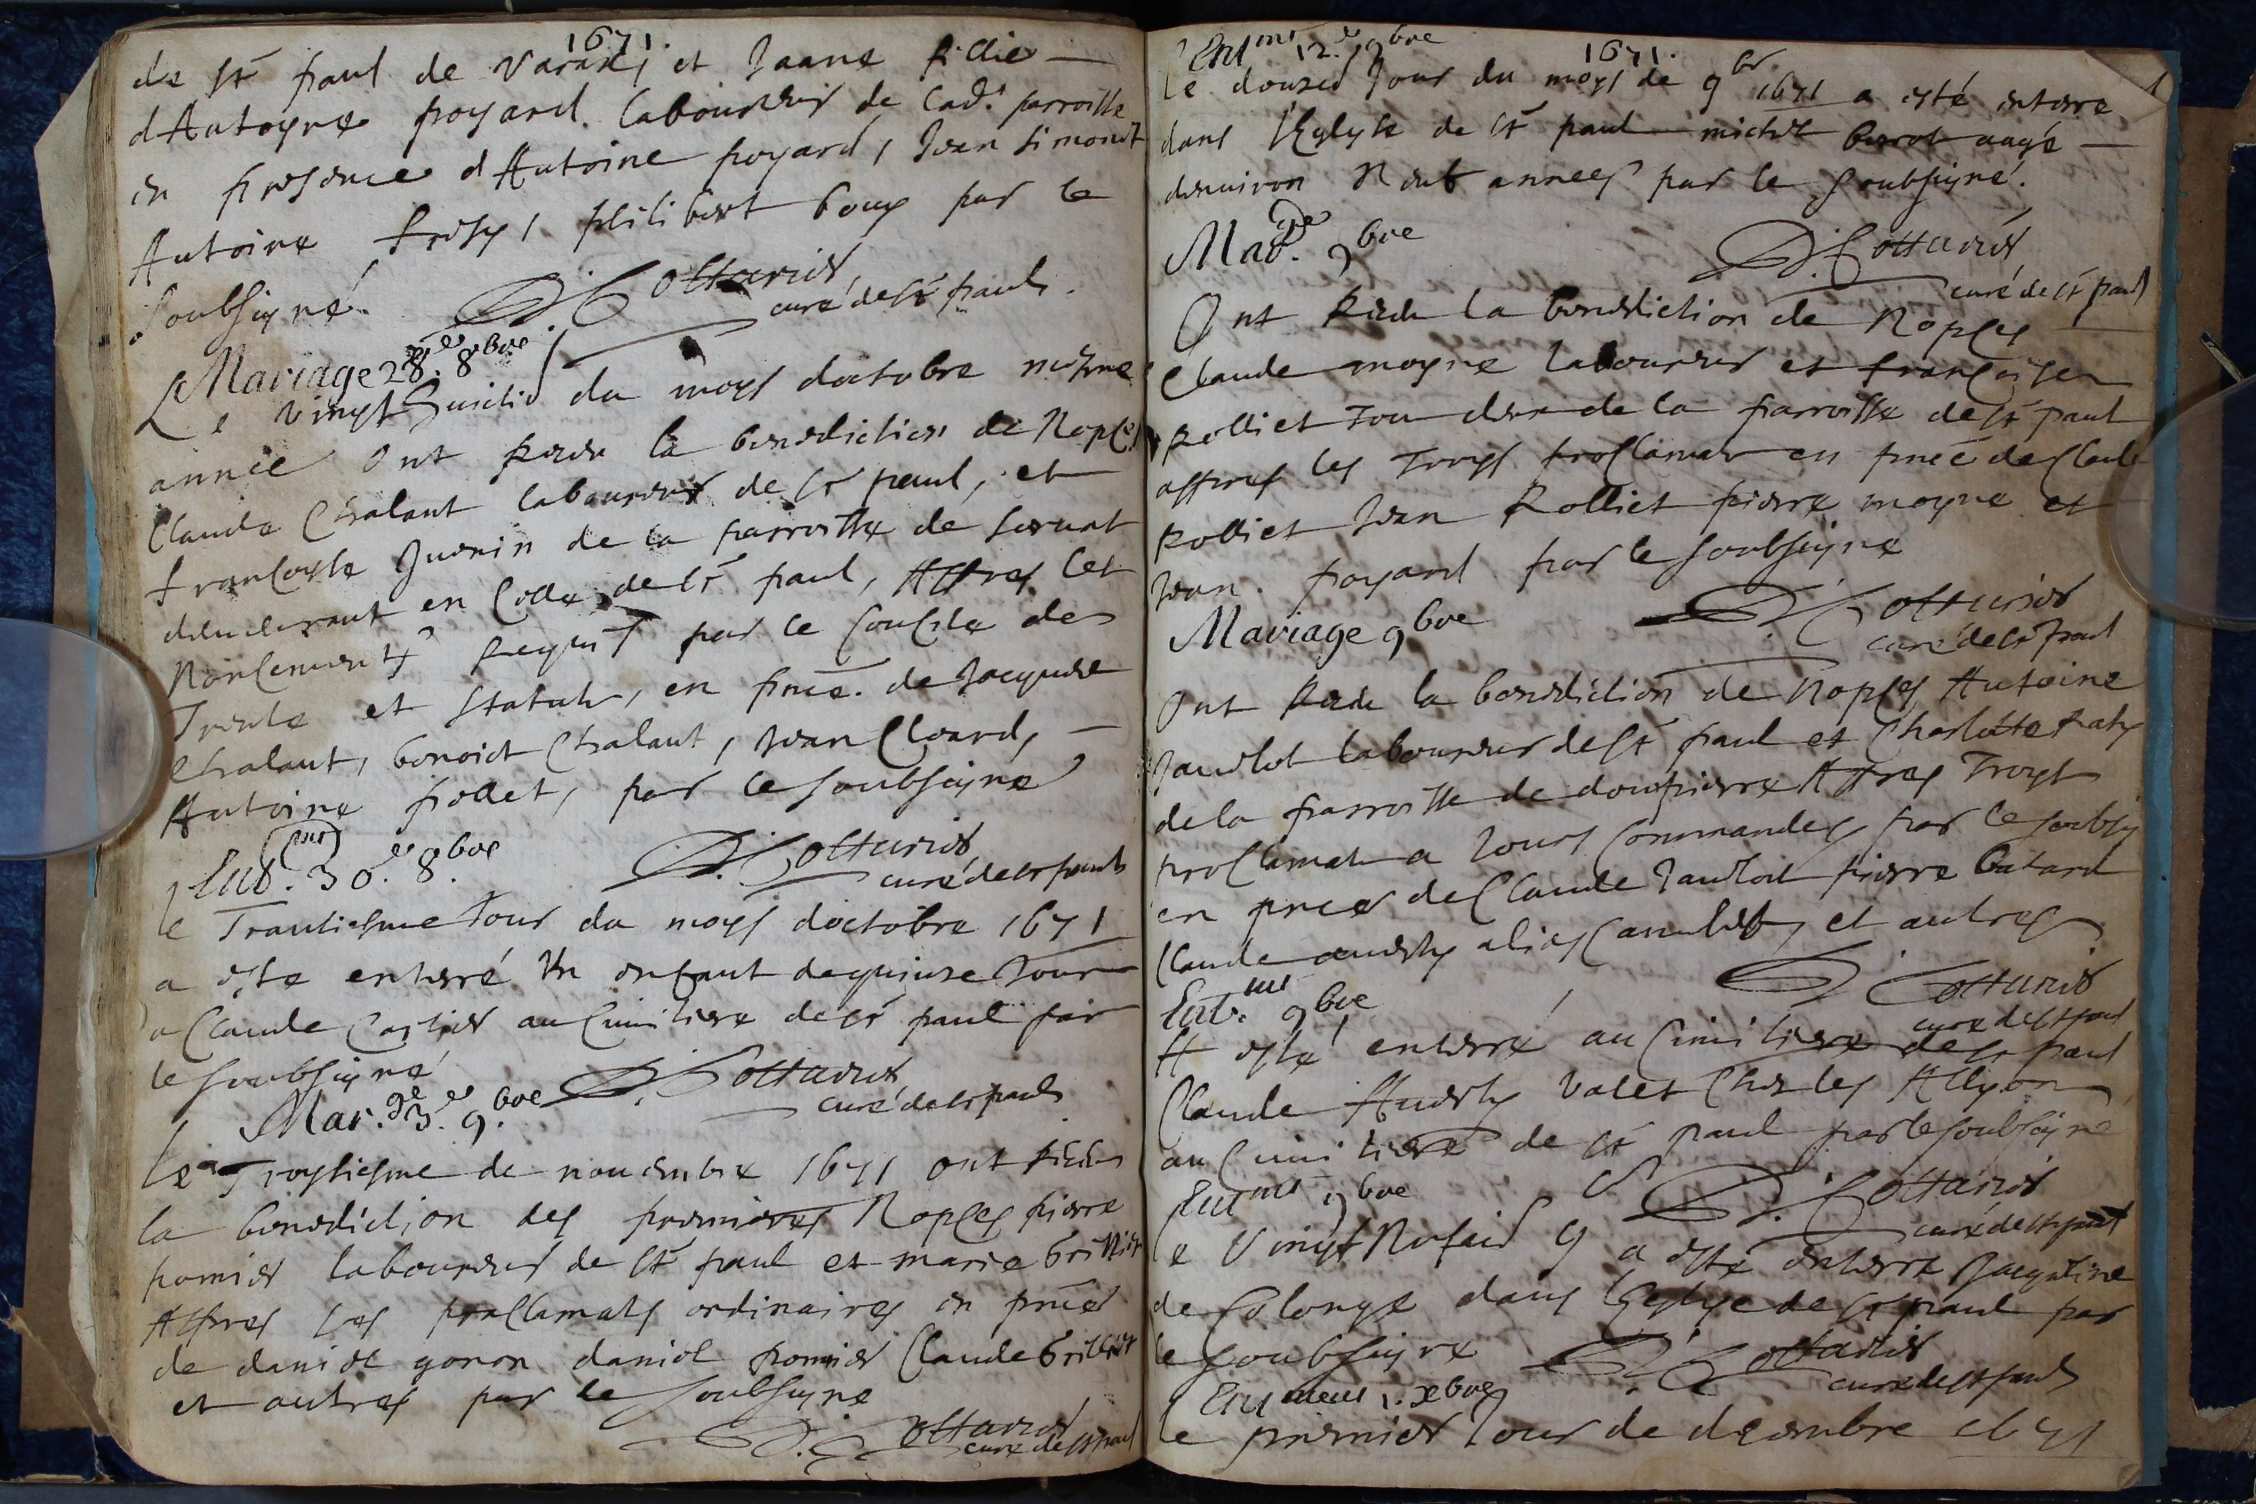 1671.
de st paul de Varax, et Jeane fillie
dAntoyne poyard laboureur de lad.e parroisse
en presence dAntoine poyard, Jean Simonet
Antoine fresy, philibert bouy par le
soubsigné.
D. Cottarier
curé de st paul.
Mariage 28.e 8.bre
Le vingt huictie du moys doctobre mesme
année Ont receu la benediction de Nopces
Claude Chalant laboureur de st paul, et
francoyse Guerin de la parroisse de servat
demeurant en Colla de st paul, Appres les
Noncements requis par le Concile de
Trente et statuts, en pnce. de Jacques
Chalant, benoict Chalant, Jean Cleard,
Antoine pollet, par le soubsigné
D. Cottarier
curé de st paul
Ent.mt 30.e 8.bre
le Trantiesme Jour du moys doctobre 1671
a este enterré Un enfant de quinze Jour
a Claude Cartier au Cimitiere de st paul par
le soubsigné
D. Cottarier
curé de st paul
Mar.ge 3.e 9.bre
Le Troysiesme de novembre 1671 ont receu
la benediction des premieres Nopces pierre
pomier laboureur de st paul et marie brillier
Appres les proclamats ordinaires en pnce
de daniel gonon daniel pomier Claude brillier
et autres par le soubsigne
D. Cottarier
curé de st paul
Ent.mt 12.e 9bre
1671.
Le douzie Jour du moys de 9br 1671 a esté enterre
dans l'Eglise de st paul michel berrot aagé
denviron Neuf annees par le soubsigné.
D. Cottarier
curé de st paul
Mar.ge 9bre
Ont Receu la benediction de Nopces
Claude moyne laboureur et francoise
Rolliet Tou deux de la parroisse de st paul
appres les Troys proclamas en pnce de Claude
Rolliet Jean Rolliet pierre moyne et
Jean poyard par le soubsigne
D. Cottarier
curé de st paul
Mariage 9bre
Ont Receu la benediction de Nopces Antoine
Janvlot laboureur de st paul et Charlotte
de la parroisse de dompierre Appres Troys
proclamats a Jours Commandes par le soubsig
en pnce de Claude pierre batard
Claude alias et autres
D. Cottarier
curé de st paul
Ent.mt 9bre
A esté enterré au Cimitiere de st paul
Claude valet Ches les Allyon
au Cimitiere de st paul par le soubsigné
D. Cottarier
curé de st paul
Ent.mt 9bre
le Vingt 9 a esté enterre Jacqueline
de Colonge dans lEglise de st paul par
le soubsigne
D. Cottarier
curé de st paul
Ent 1. xbre
le premier Jour de decembre 1671